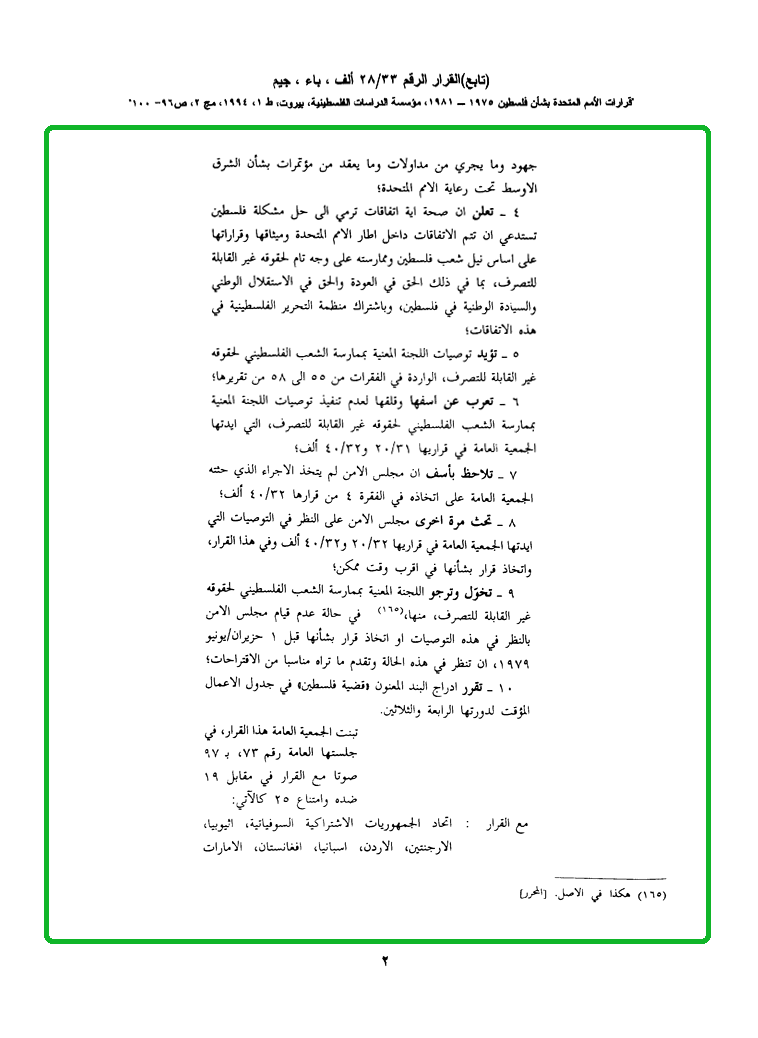 (تابع)القرار الرقم ٢٨/٣٣ ألف ، باء ، جيم
"قرارات الأمم المتحدة بشأن فلسطين ١٩٧٥ – ١٩٨١، مؤسسة الدراسات الفلسطينية، بيروت، ط ١، ١٩٩٤، مج ٢، ص٩٦- ١٠٠"
جهود وما يجري من مداولات وما يعقد من مؤتمرات بشأن الشرق
الاوسط تحت رعاية الامم المتحدة؛
٤ ـ تعلن ان صحة اية اتفاقات ترمي الى حل مشكلة فلسطين
تستدعي ان تتم الاتفاقات داخل اطار الامم المتحدة وميثاقها وقراراتها
على اساس نيل شعب فلسطين وممارسته على وجه تام لحقوقه غير القابلة
للتصرف، بما في ذلك الحق في العودة والحق في الاستقلال الوطني
والسيادة الوطنية في فلسطين، وباشتراك منظمة التحرير الفلسطينية في
هذه الاتفاقات؛
٥ ـ تؤيد توصيات اللجنة المعنية بممارسة الشعب الفلسطيني لحقوقه
غير القابلة للتصرف، الواردة في الفقرات من ٥٥ الى ٥٨ من تقريرها؛
٦ ـ تعرب عن اسفها وقلقها لعدم تنفيذ توصيات اللجنة المعنية
بممارسة الشعب الفلسطيني لحقوقه غير القابلة للتصرف، التي ايدتها
الجمعية العامة في قراريها ٢٠/٣١ و٤٠/٣٢ ألف؛
٧ ـ تلاحظ بأسف ان مجلس الامن لم يتخذ الاجراء الذي حثته
الجمعية العامة على اتخاذه في الفقرة ٤ من قرارها ٤٠/٣٢ ألف؛
٨ ـ تحث مرة اخرى مجلس الامن على النظر في التوصيات التي
ايدتها الجمعية العامة في قراريها ٢٠/٣٢ و٤٠/٣٢ ألف وفي هذا القرار،
واتخاذ قرار بشأنها في اقرب وقت ممكن؛
٩ ـ تخوّل وترجو اللجنة المعنية بممارسة الشعب الفلسطيني لحقوقه
غير القابلة للتصرف، منها،(١٦٥) في حالة عدم قيام مجلس الامن
بالنظر في هذه التوصيات او اتخاذ قرار بشأنها قبل ١ حزيران/يونيو
١٩٧٩، ان تنظر في هذه الحالة وتقدم ما تراه مناسبا من الاقتراحات؛
١٠ ـ تقرر ادراج البند المعنون «قضية فلسطين» في جدول الاعمال
المؤقت لدورتها الرابعة والثلاثين.
تبنت الجمعية العامة هذا القرار، في
جلستها العامة رقم ٧٣، بـ ٩٧
صوتا مع القرار في مقابل ١٩
ضده وامتناع ٢٥ كالآتي:
مع القرار : اتحاد الجمهوريات الاشتراكية السوفياتية، اثيوبيا،
الارجنتين، الاردن، اسبانيا، افغانستان، الامارات
(١٦٥) هكذا في الاصل. [المحرر]
٢